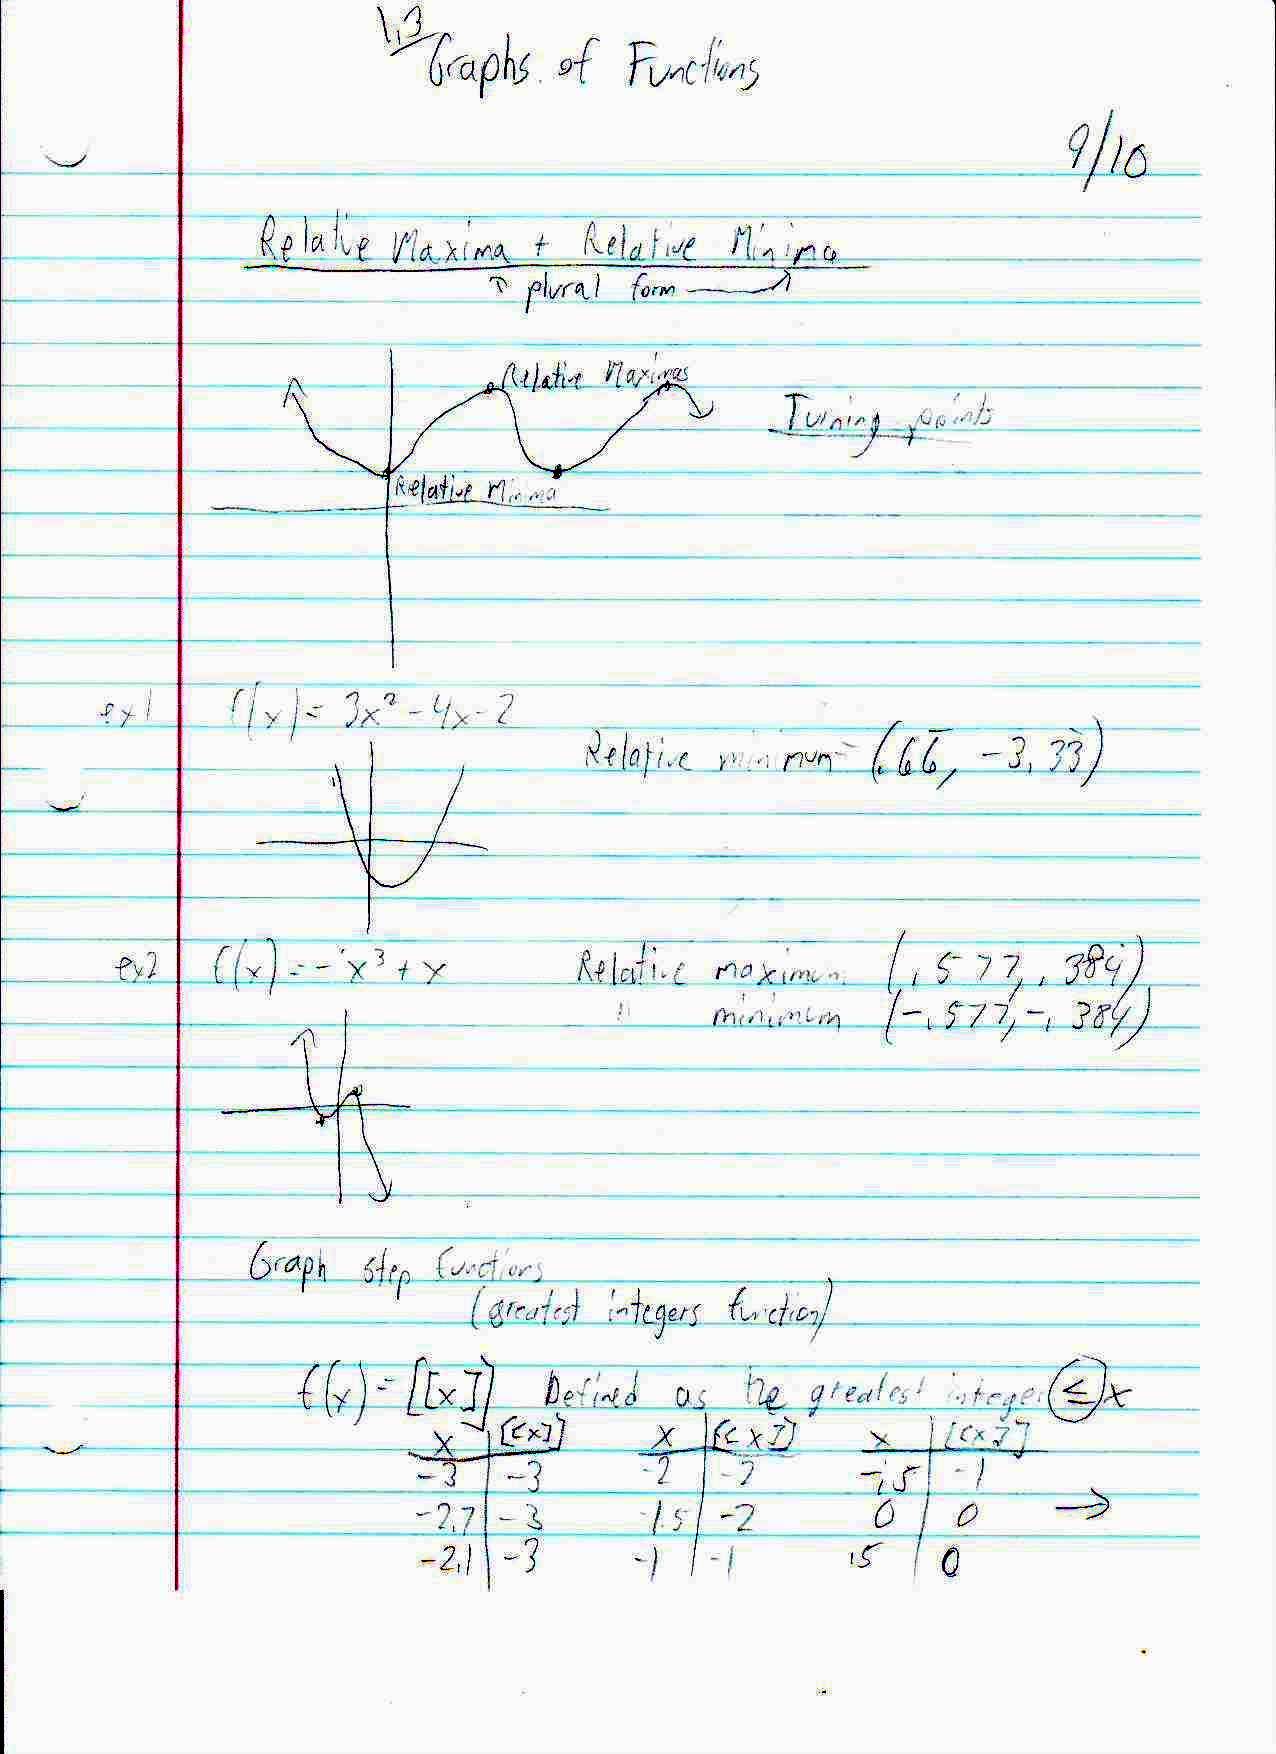 1.3
Graphs of Functions
9/10
Relative Maxima + Relative Minima
↑ plural form →
Relative Maximas
Turning points
Relative Minima
ex1 f(x) = 3x² - 4x - 2
Relative minimum = (.66̅, -3.33̅)
ex2 f(x) = -x³ + x Relative maximum (.577, .384)
" minimum (-.577, -.384)
Graph step functions
(greatest integers function)
f(x) = [[x]] Defined as the greatest integer ≤ x
x [[x]] x [[x]] x [[x]]
-3 -3 -2 -2 -.5 -1
-2.7 -3 -1.5 -2 0 0 →
-2.1 -3 -1 -1 .5 0